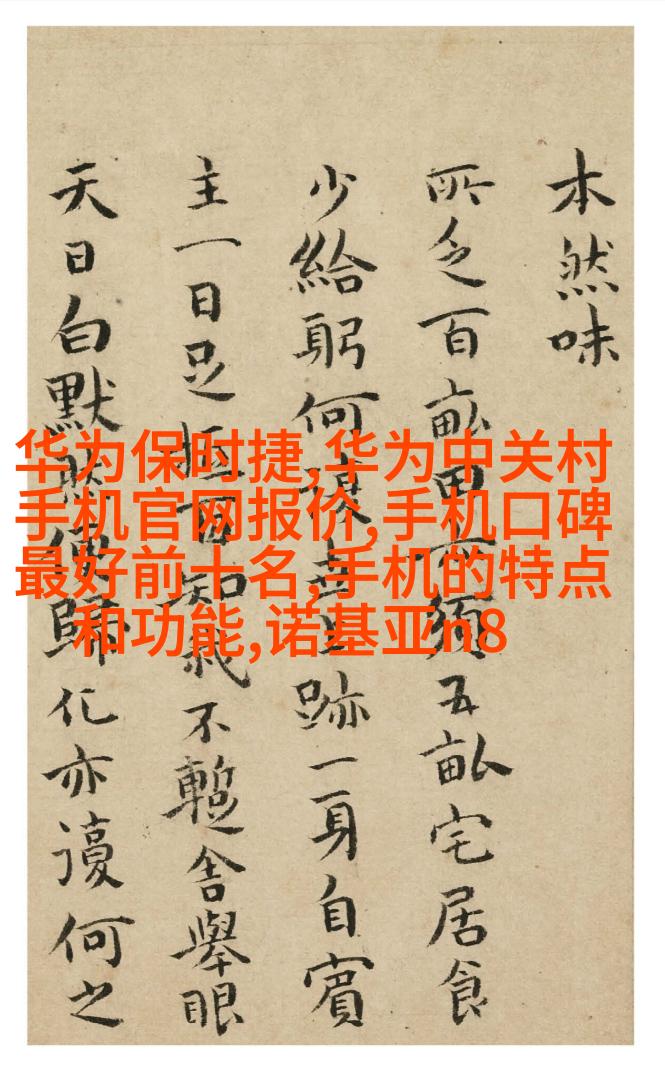 本然味
所乏百畝須五畝宅居食
少給躬何謀跡一身自賓
主一日足百知我不蹔舍舉眼
天日白默歸化亦謾何之
华为保时捷,华为中关村
手机官网报价,手机口碑
最好前十名,手机的特点
和功能,诺基亚n8